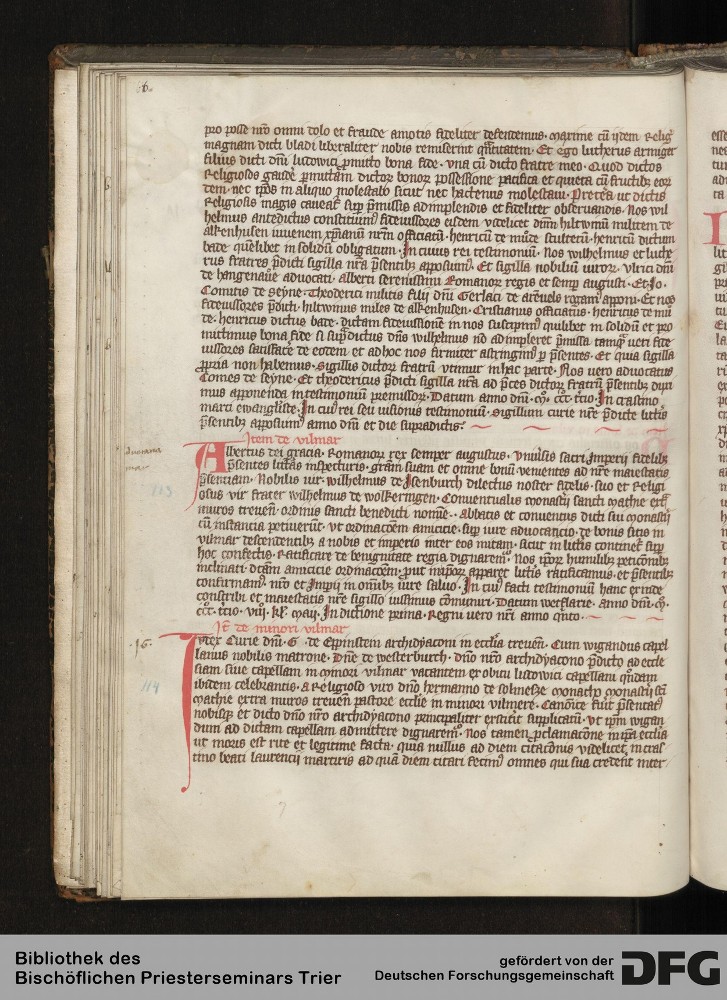 pro posse nro omni dolo et fraude amotis fideliter defendemus. maxime cu ijdem Relig
magnam dicti bladi liberaliter nobis remiserint qntitatem. Et ego lutherus armiger
filius dicti dni ludowici pmitto bona fide. vna cu dicto fratre meo. Quod dictos
Religiosos gaude pmittam dictor bonor possessione pacifica et quieta cu fructibz eor
dem. nec ipos in aliquo molestabo sicut nec hactenus molestaui. Preterea ut dictis
Religiosis magis caueat sup pmissis adimplendis et fideliter obseruandis. Nos wil
helmus antedictus constituim fideiussores eisdem videlicet dnm hiltwinu militem de
alkenhusen iuuenem xpianu nrm officiatu. henricu de mude scultetu. henricu dictum
bade quelibet in solidu obligatum. In cuius rei testimoniu. Nos wilhelmus et luthe
rus fratres pdicti sigilla nra psentibz apposuim. Et sigilla nobiliu viror. vlrici dni
de hangenaue aduocati. alberti serenissimi Romanor regis et semp augusti. Et Jo.
Comitis de Seyne. Theoderici militis filij dni Gerlaci de arenuels rogam apponi. Et nos
fideiussores pdicti. hiltwinus miles de alkenhusen. Cristianus officiatus. henricus de mu
de. henricus dictus bade. dictam fideiussionem in nos suscepim quilibet in solidu et pro
mittimus bona fide si supdictus dns wilhelmus no adimpleret pmissa tamq ueri fide
iussores satisface de eodem et ad hoc nos firmiter astringim p psentes. Et quia sigilla
ppria non habemus. sigillis dictor fratru vtimur in hac parte. Nos vero aduocatus
Comes de Seyne. Et theodericus pdicti sigilla nra ad pces dictor fratru psentibz dixi
mus apponenda in testimoniu premissor. Datum anno dni. m. ccc. tcio. In crastino
marci ewangeliste. In cui rei seu visionis testimoniu. Sigillum curie nre pdicte litis
psentibz apposuim anno dni et die supradictis.
Item de vilmar
Albertus dei gracia. Romanor rex semper augustus. Vniuersis sacri Imperij fidelibz
psentes litas inspecturis. gram suam et omne bonu. venientes ad nre maiestatis
psentiam. Nobilis vir. wilhelmus de Isenburch dilectus noster fidelis. suo et Religi
osus vir frater wilhelmus de wolkeringen. Conuentualis monastij sancti mathie ext
muros treuen. ordinis sancti benedicti nomie. abbatis et conuentus dicti sui monastij
cu instancia petiuerut. vt ordinacoem amicicie. sup iure aduocacio. de bonis sitis in
vilmar descendentibz a nobis et imperio inter eos initam. sicut in litis continet sup
hoc confectis. Ratificare de benignitate regia dignarem. Nos ipor humilibz peticonibz
inclinati. dcam amicicie ordinacoem. put in ipor apparet litis ratificamus. et psentibz
confirmam. nro et Impij in omibz iure saluo. In cui facti testimoniu hanc exinde
conscribi et maiestatis nre sigillo iussimus comuniri. Datum wetflarie. anno dni. m.
ccc. tcio. viij. kl. maij. In dictione prima. Regni vero nri anno qnto.
It de minori vilmar
16.
Iudex Curie dni. G. de Eppinstein archidyaconi in ecclia treuen. Cum wigandus capel
lanus nobilis matrone. Dne de westerburch. dno nro archidyacono pdicto ad eccle
siam siue capellam in minori vilmar vacantem ex obitu ludowici capellani quodam
ibidem celebrantis. a Religioso viro dno hermanno de solmesze monacho monastij sci
mathie extra muros treuen pastore ecclie in minori vilmere. Canonice fuit psentat
nobisqz et dicto dno nro archidyacono principaliter extitit supplicatu. vt ipm wigan
dum ad dictam capellam admittere dignarem. nos tamen pclamacone in ipa ecclia
ut moris est rite et legitime facta. quia nullus ad diem citaconis videlicet in cras
tino beati laurencij martiris ad qua diem citari fecim omnes qui sua crederent inter
113
114
Bibliothek des
Bischöflichen Priesterseminars Trier
gefördert von der
Deutschen Forschungsgemeinschaft
DFG